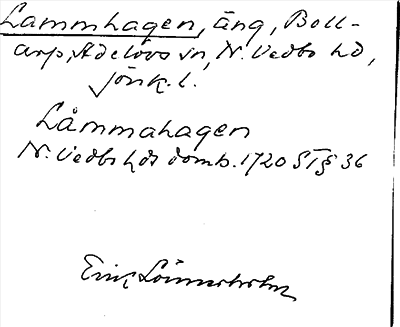 Lammhagen, äng, Boll-
arp, Adelövs sn, N. Vedbo hd,
Jönk. l.
Låmmahagen
N. Vedbo hds domb. 1720 § 36
Erik Lönnerholm